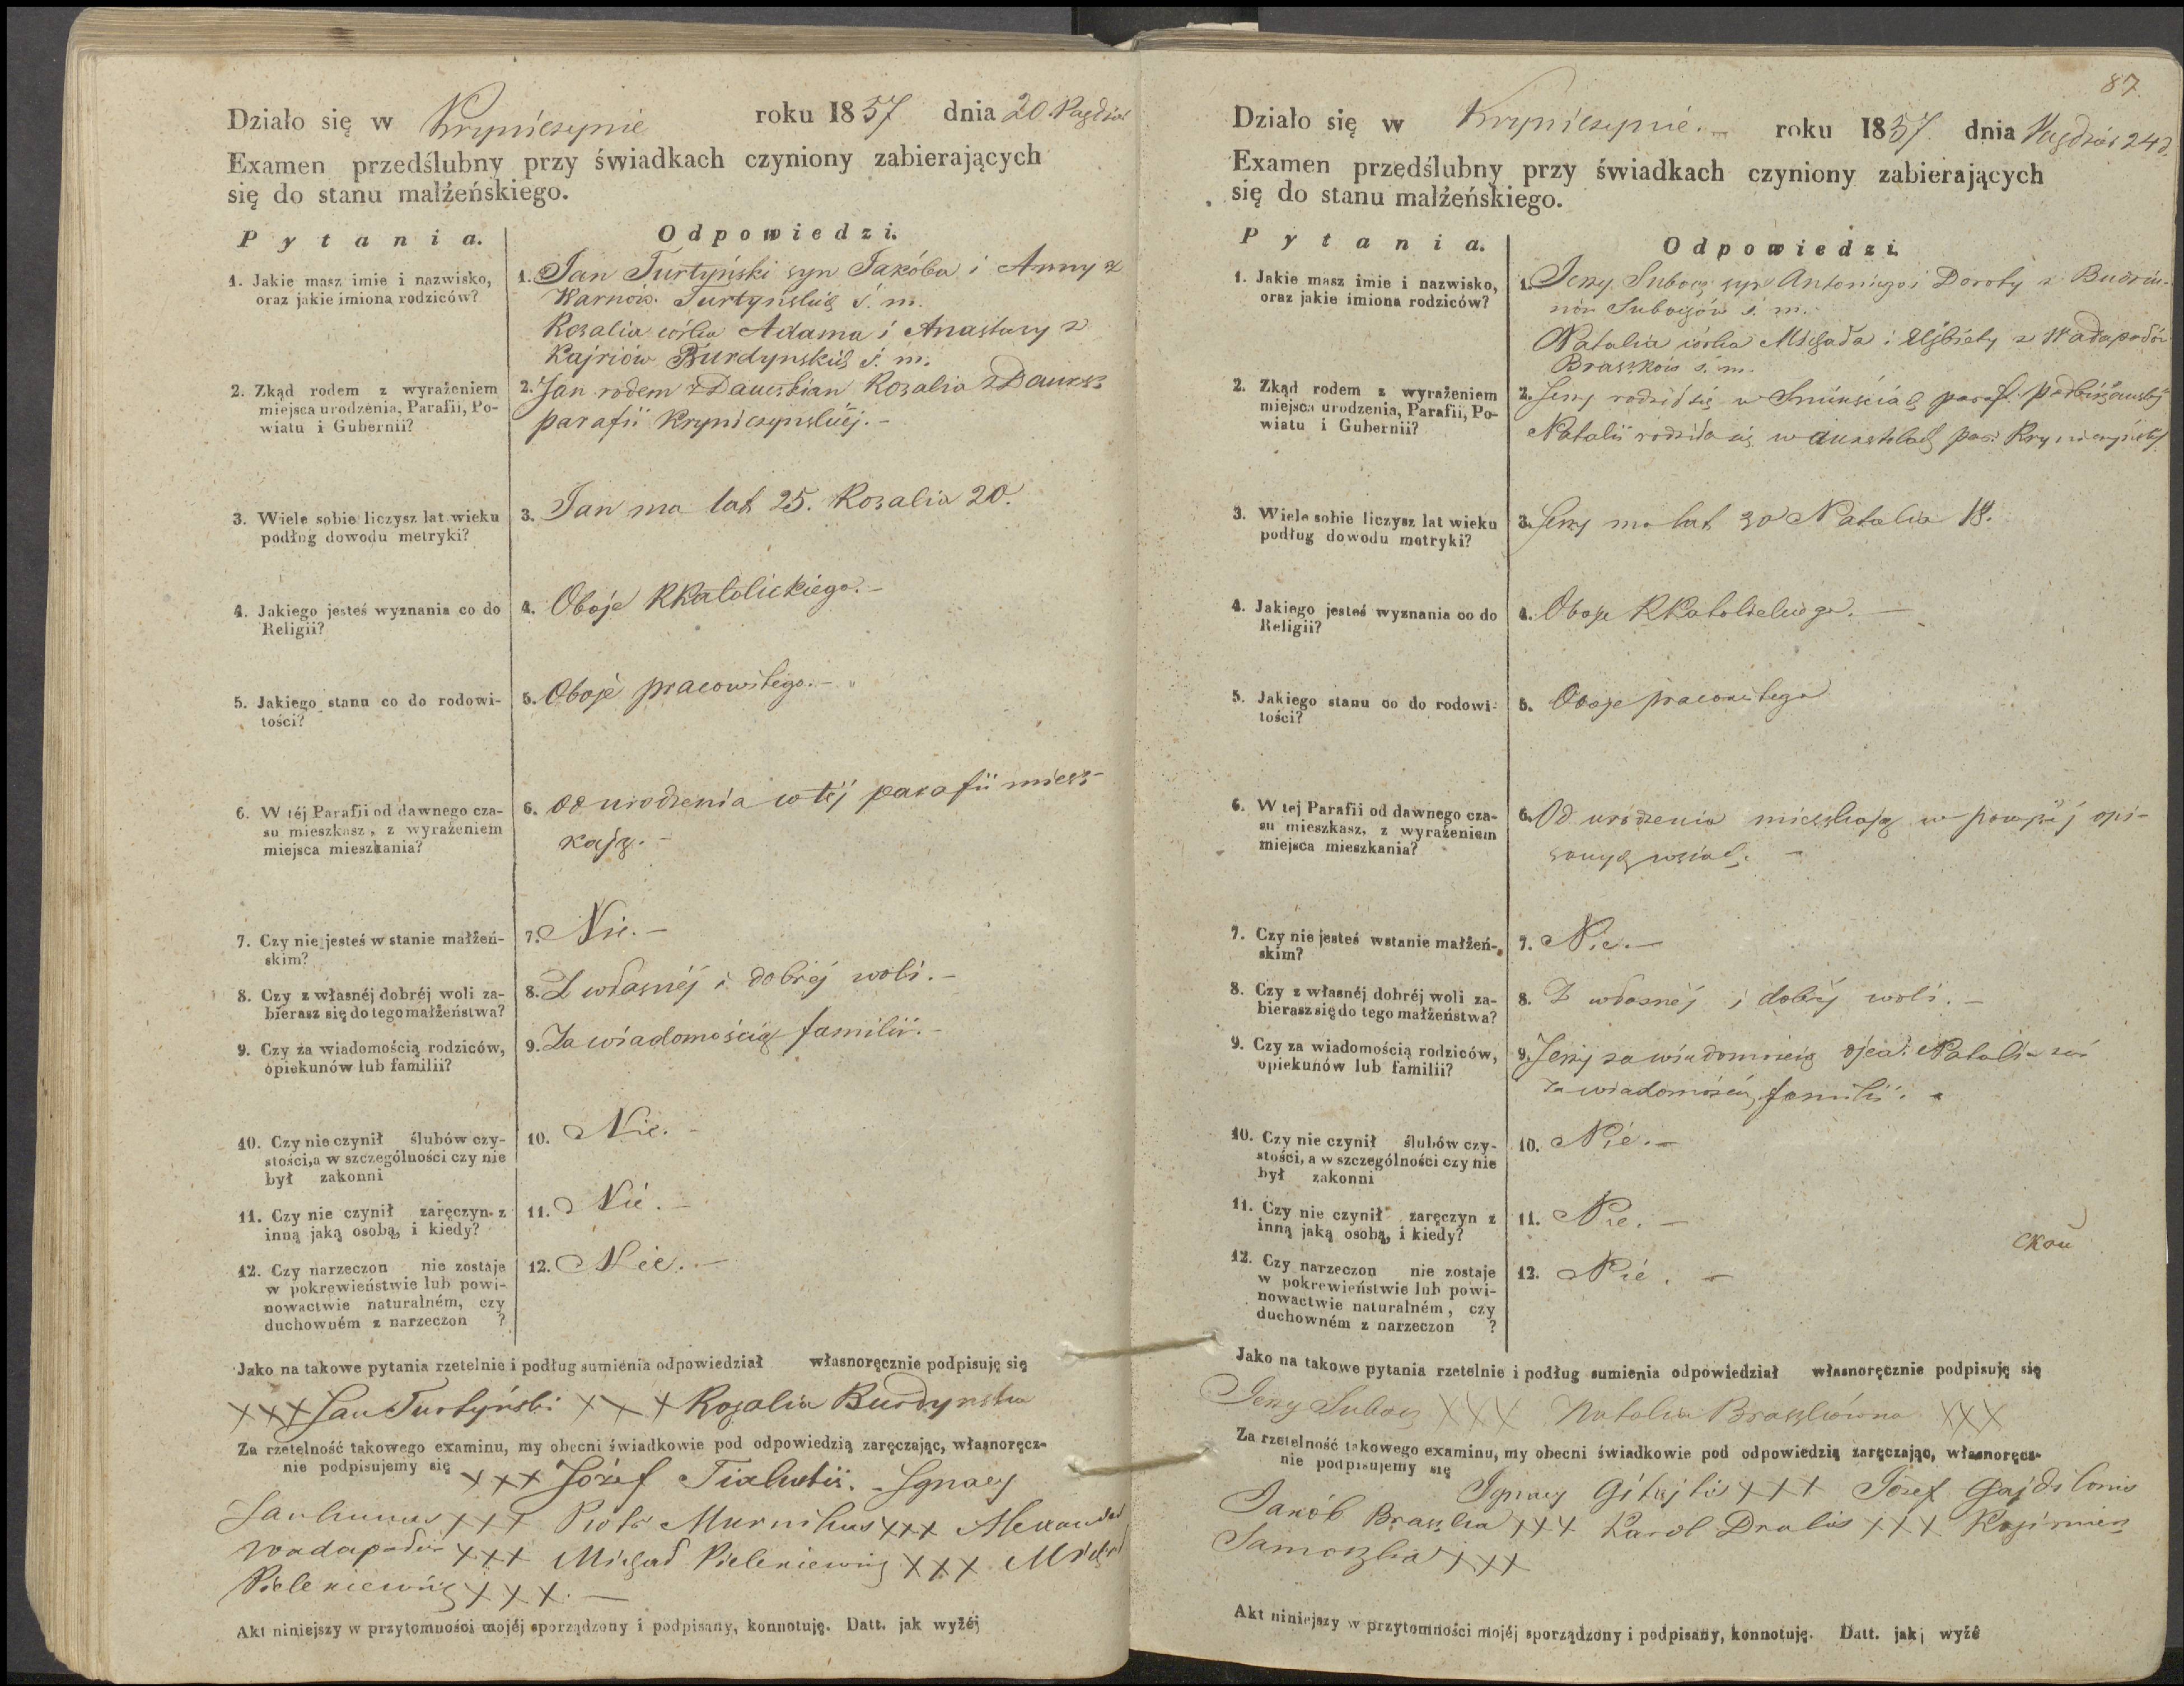 Działo się w Kryniczynie roku 1857 dnia 20. Paździer
Examen przedślubny przy świadkach czyniony zabierających
się do stanu małżeńskiego.
Pytania.
Odpowiedzi.
1. Jakie masz imie i nazwisko,
oraz jakie imiona rodziców?
1. Jan Turtyński syn Jakóba i Anny z
Turtyńskich ś. m.
Rozalia córka Adama i Anastazy z
Burdynskich ś. m.
2. Zkąd rodem z wyrażeniem
miejsca urodzenia, Parafii, Po-
wiatu i Gubernii?
2. Jan rodem z Rozalia z
parafii Kryniczynskiej. -
3. Wiele sobie liczysz lat wieku
podług dowodu metryki?
3. Jan ma lat 25. Rozalia 20.
4. Jakiego jesteś wyznania co do
Religii?
4. Oboje RKatolickiego. -
5. Jakiego stanu co do rodowi-
tości?
5. Oboje pracowitego. -
6. W téj Parafii od dawnego cza-
su mieszkasz, z wyrażeniem
miejsca mieszkania?
6. Od urodzenia w téj parafii miesz-
kają. -
7. Czy nie jesteś w stanie małżeń-
skim?
7. Nie. -
8. Czy z własnéj dobréj woli za-
bierasz się do tego małżeństwa?
8. Z własnéj i dobréj woli. -
9. Czy za wiadomością rodziców,
opiekunów lub familii?
9. Za wiadomością familii. -
10. Czy nie czynił ślubów czy-
stości, a w szczególności czy nie
był zakonni
10. Nie. -
11. Czy nie czynił zaręczyn z
inną jaką osobą, i kiedy?
11. Nie. -
12. Czy narzeczon nie zostaje
w pokrewieństwie lub powi-
nowactwie naturalném, czy
duchowném z narzeczon ?
12. Nie. -
Jako na takowe pytania rzetelnie i podług sumienia odpowiedział własnoręcznie podpisuję się
XXX Jan Turtyński XXX Rozalia Burdynska
Za rzetelność takowego examinu, my obecni świadkowie pod odpowiedzią zaręczając, własnoręcz-
nie podpisujemy się XXX Józef Ignacy
XXX Piotr Murnikas XXX
XXX Michał Pieleniewicz XXX Michał
Pieleniewicz XXX. -
Akt niniejszy w przytomności mojéj sporządzony i podpisany, konnotuję. Datt. jak wyżéj
87.
Działo się w Kryniczynie. roku 1857. dnia Paździer 24 d.
Examen przedślubny przy świadkach czyniony zabierających
się do stanu małżeńskiego.
Pytania.
Odpowiedzi.
1. Jakie masz imie i nazwisko,
oraz jakie imiona rodziców?
1. Jerzy Subocz syn Antoniego i Doroty z
Suboczów ś. m.
Natalia córka Michała i Elżbiety z
Braszków ś. m.
2. Zkąd rodem z wyrażeniem
miejsca urodzenia, Parafii, Po-
wiatu i Gubernii?
2. Jerzy rodził się w paraf.
rodziła się w par. Kryniczyńskiéj
3. Wiele sobie liczysz lat wieku
podług dowodu metryki?
3. Jerzy ma lat 30 Natalia 18.
4. Jakiego jesteś wyznania co do
Religii?
4. Oboje RKatolickiego. -
5. Jakiego stanu co do rodowi-
tości?
5. Oboje pracowitego
6. W tej Parafii od dawnego cza-
su mieszkasz, z wyrażeniem
miejsca mieszkania?
6. Od urodzenia mieszkają w powyżéj opi-
sanych wsiach. -
7. Czy nie jesteś wstanie małżeń-
skim?
7. Nie. -
8. Czy z własnéj dobréj woli za-
bierasz się do tego małżeństwa?
8. Z własnéj i dobréj woli. -
9. Czy za wiadomością rodziców,
opiekunów lub familii?
9. Jerzy za wiadomością ojca. Natalia zaś
za wiadomością familii. -
10. Czy nie czynił ślubów czy-
stości, a w szczególności czy nie
był zakonni
10. Nie. -
11. Czy nie czynił zaręczyn z
inną jaką osobą, i kiedy?
11. Nie. -
12. Czy narzeczon nie zostaje
w pokrewieństwie lub powi-
nowactwie naturalném, czy
duchowném z narzeczon ?
12. Nie. -
Jako na takowe pytania rzetelnie i podług sumienia odpowiedział własnoręcznie podpisuję się
Jerzy Subocz XXX Natalia Braszkówna XXX
Za rzetelność takowego examinu, my obecni świadkowie pod odpowiedzią zaręczając, własnoręcz-
nie podpisujemy się Ignacy XXX Józef
Jakób Braszka XXX Karol XXX Kazimierz
XXX
Akt niniejszy w przytomności mojéj sporządzony i podpisany, konnotuję. Datt. jak j wyżé